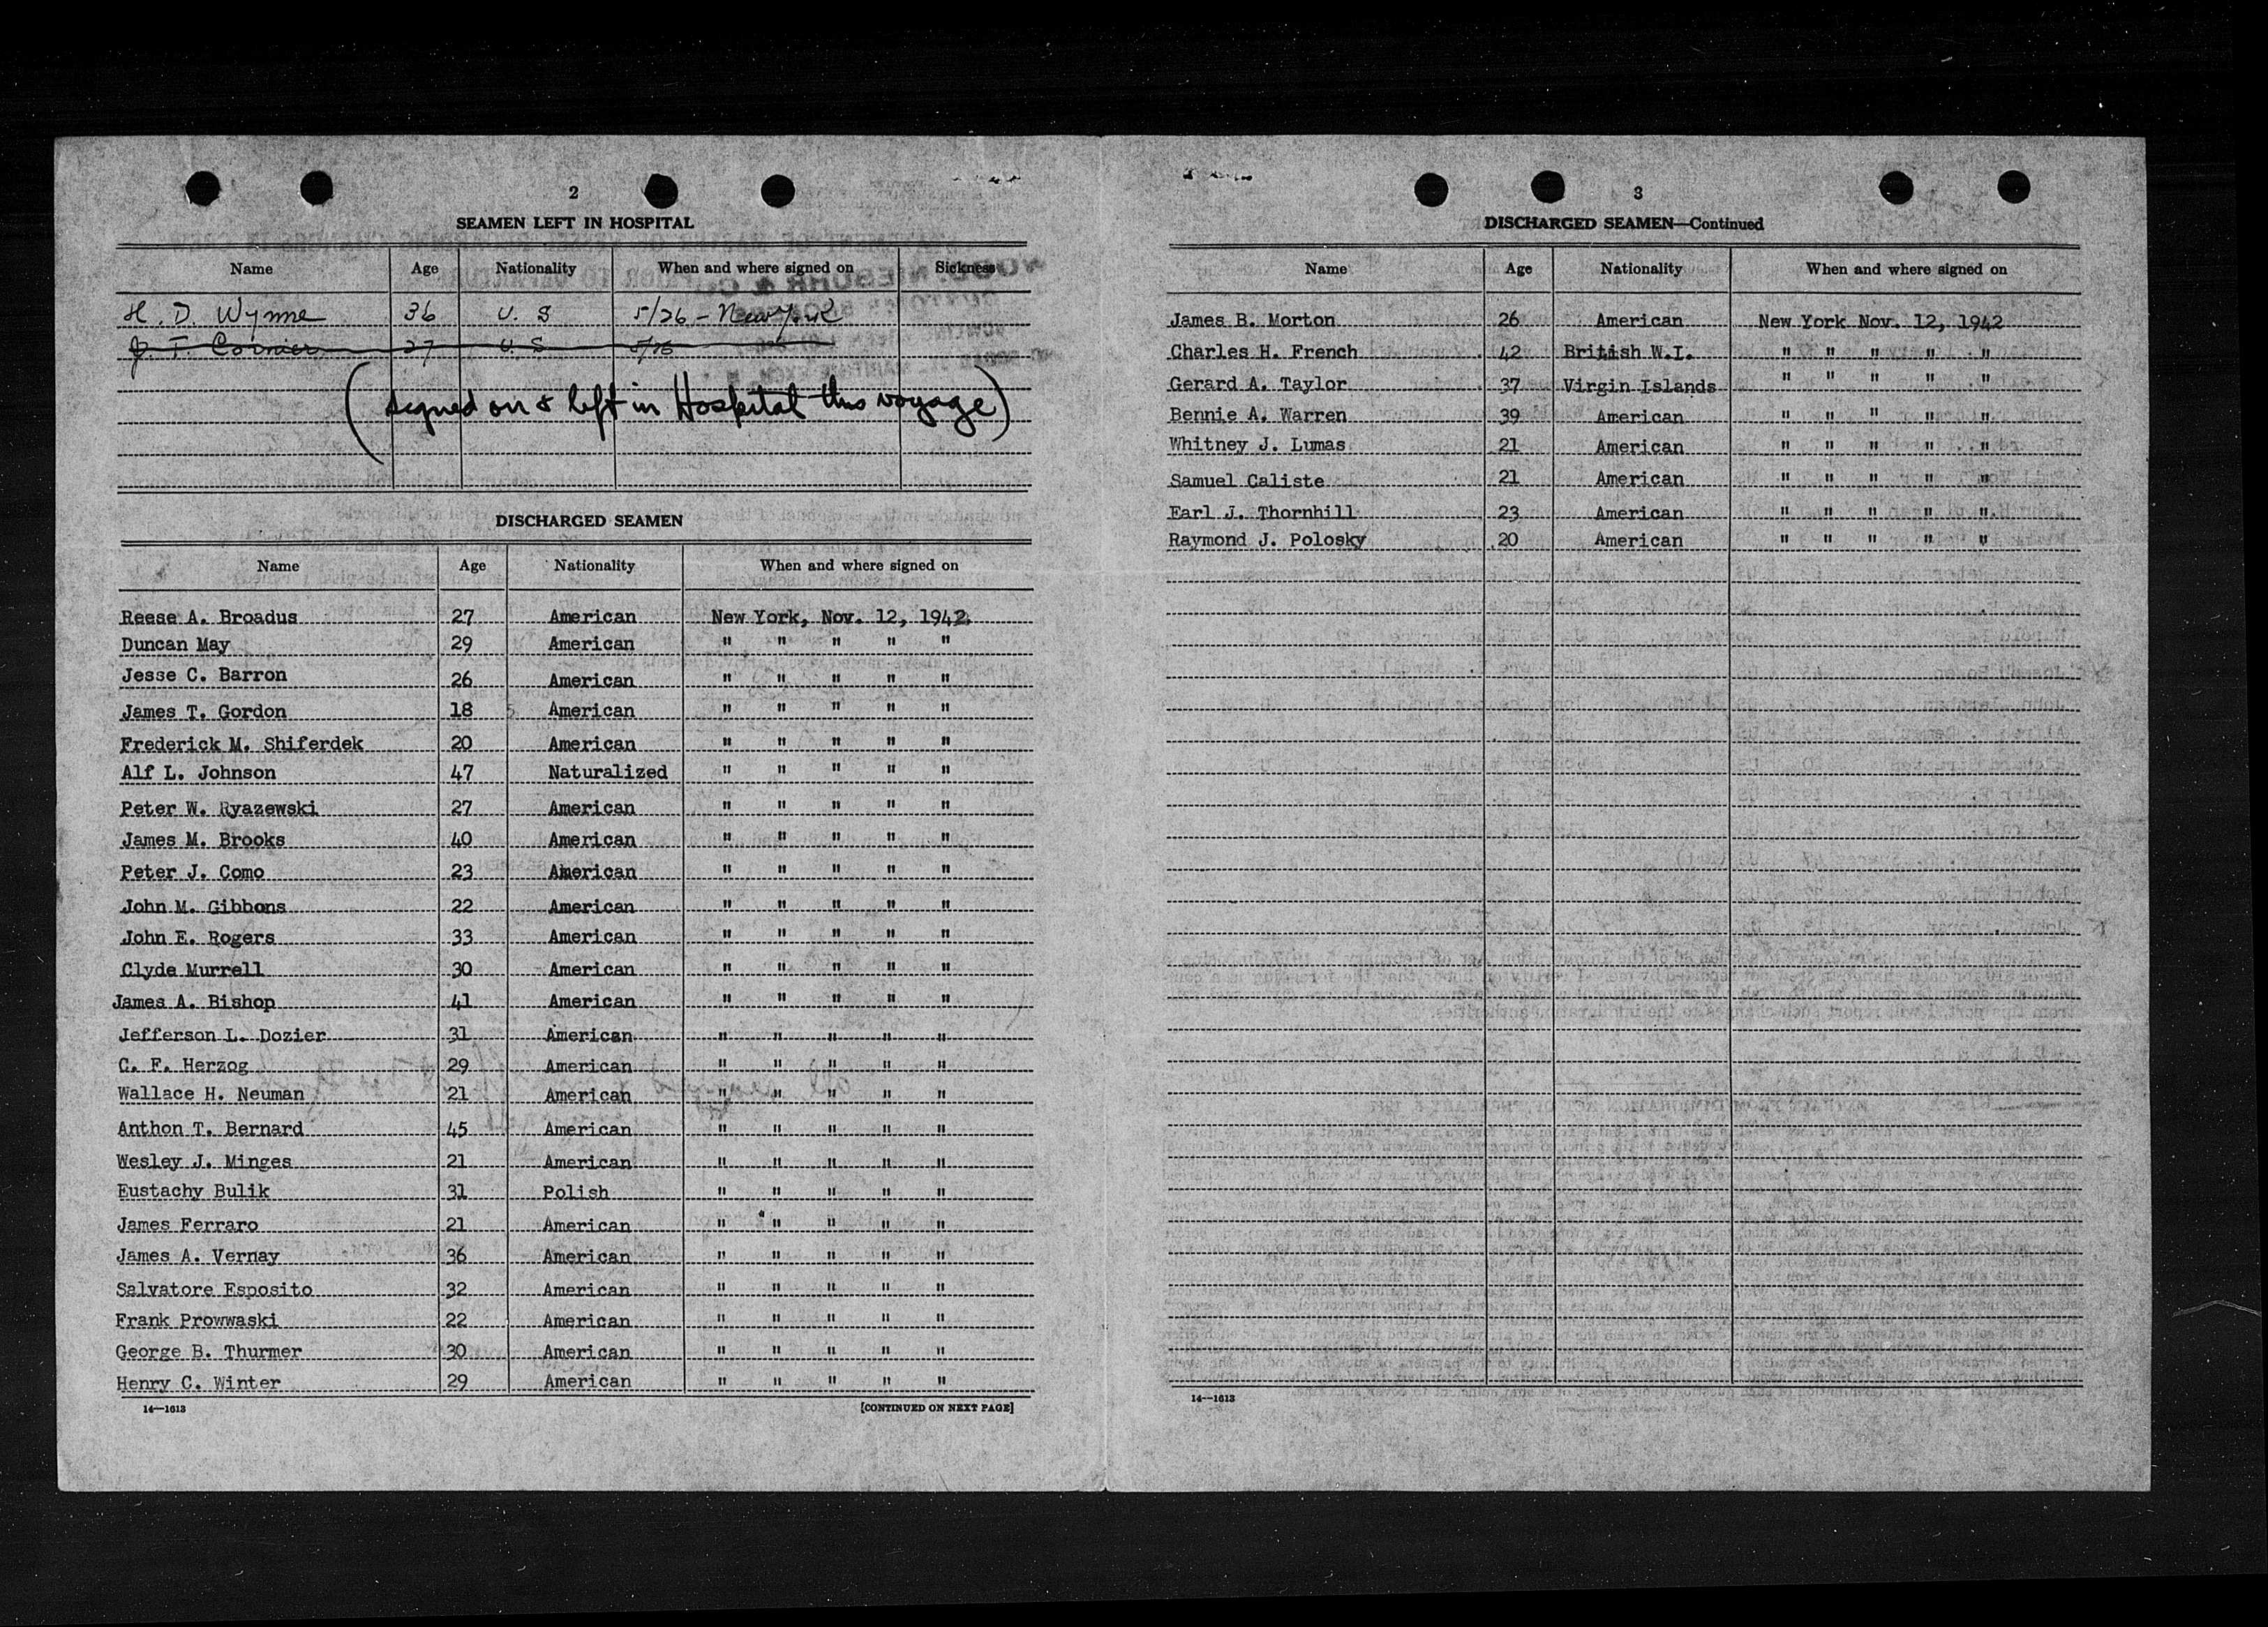 2
SEAMEN LEFT IN HOSPITAL
Name Age Nationality When and where signed on Sickness
H. D. Wynne 36 U. S 5/26 - New York
J. T. Cormier 27 U. S 5/26
(signed on & left in Hospital this voyage)
DISCHARGED SEAMEN
Name Age Nationality When and where signed on
Reese A. Broadus 27 American New York, Nov. 12, 1942
Duncan May 29 American " " " " "
Jesse C. Barron 26 American " " " " "
James T. Gordon 18 American " " " " "
Frederick M. Shiferdek 20 American " " " " "
Alf L. Johnson 47 Naturalized " " " " "
Peter W. Ryazewski 27 American " " " " "
James M. Brooks 40 American " " " " "
Peter J. Como 23 American " " " " "
John M. Gibbons 22 American " " " " "
John E. Rogers 33 American " " " " "
Clyde Murrell 30 American " " " " "
James A. Bishop 41 American " " " " "
Jefferson L. Dozier 31 American " " " " "
C. F. Herzog 29 American " " " " "
Wallace H. Neuman 21 American " " " " "
Anthon T. Bernard 45 American " " " " "
Wesley J. Minges 21 American " " " " "
Eustachy Bulik 31 Polish " " " " "
James Ferraro 21 American " " " " "
James A. Vernay 36 American " " " " "
Salvatore Esposito 32 American " " " " "
Frank Prowwaski 22 American " " " " "
George B. Thurmer 30 American " " " " "
Henry C. Winter 29 American " " " " "
14—1613 [CONTINUED ON NEXT PAGE]
3
DISCHARGED SEAMEN—Continued
Name Age Nationality When and where signed on
James B. Morton 26 American New York Nov. 12, 1942
Charles H. French 42 British W.I. " " " " "
Gerard A. Taylor 37 Virgin Islands " " " " "
Bennie A. Warren 39 American " " " " "
Whitney J. Lumas 21 American " " " " "
Samuel Caliste 21 American " " " " "
Earl J. Thornhill 23 American " " " " "
Raymond J. Polosky 20 American " " " " "
14—1613